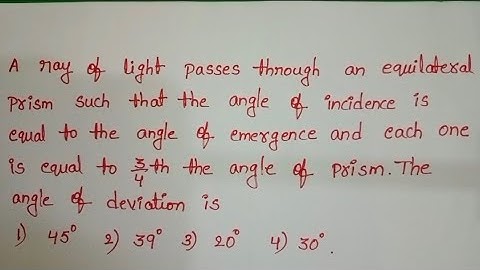 A ray of light passes through an equilateral
prism such that the angle of incidence is
equal to the angle of emergence and each one
is equal to 3/4th the angle of prism. The
angle of deviation is
1) 45° 2) 39° 3) 20° 4) 30°.